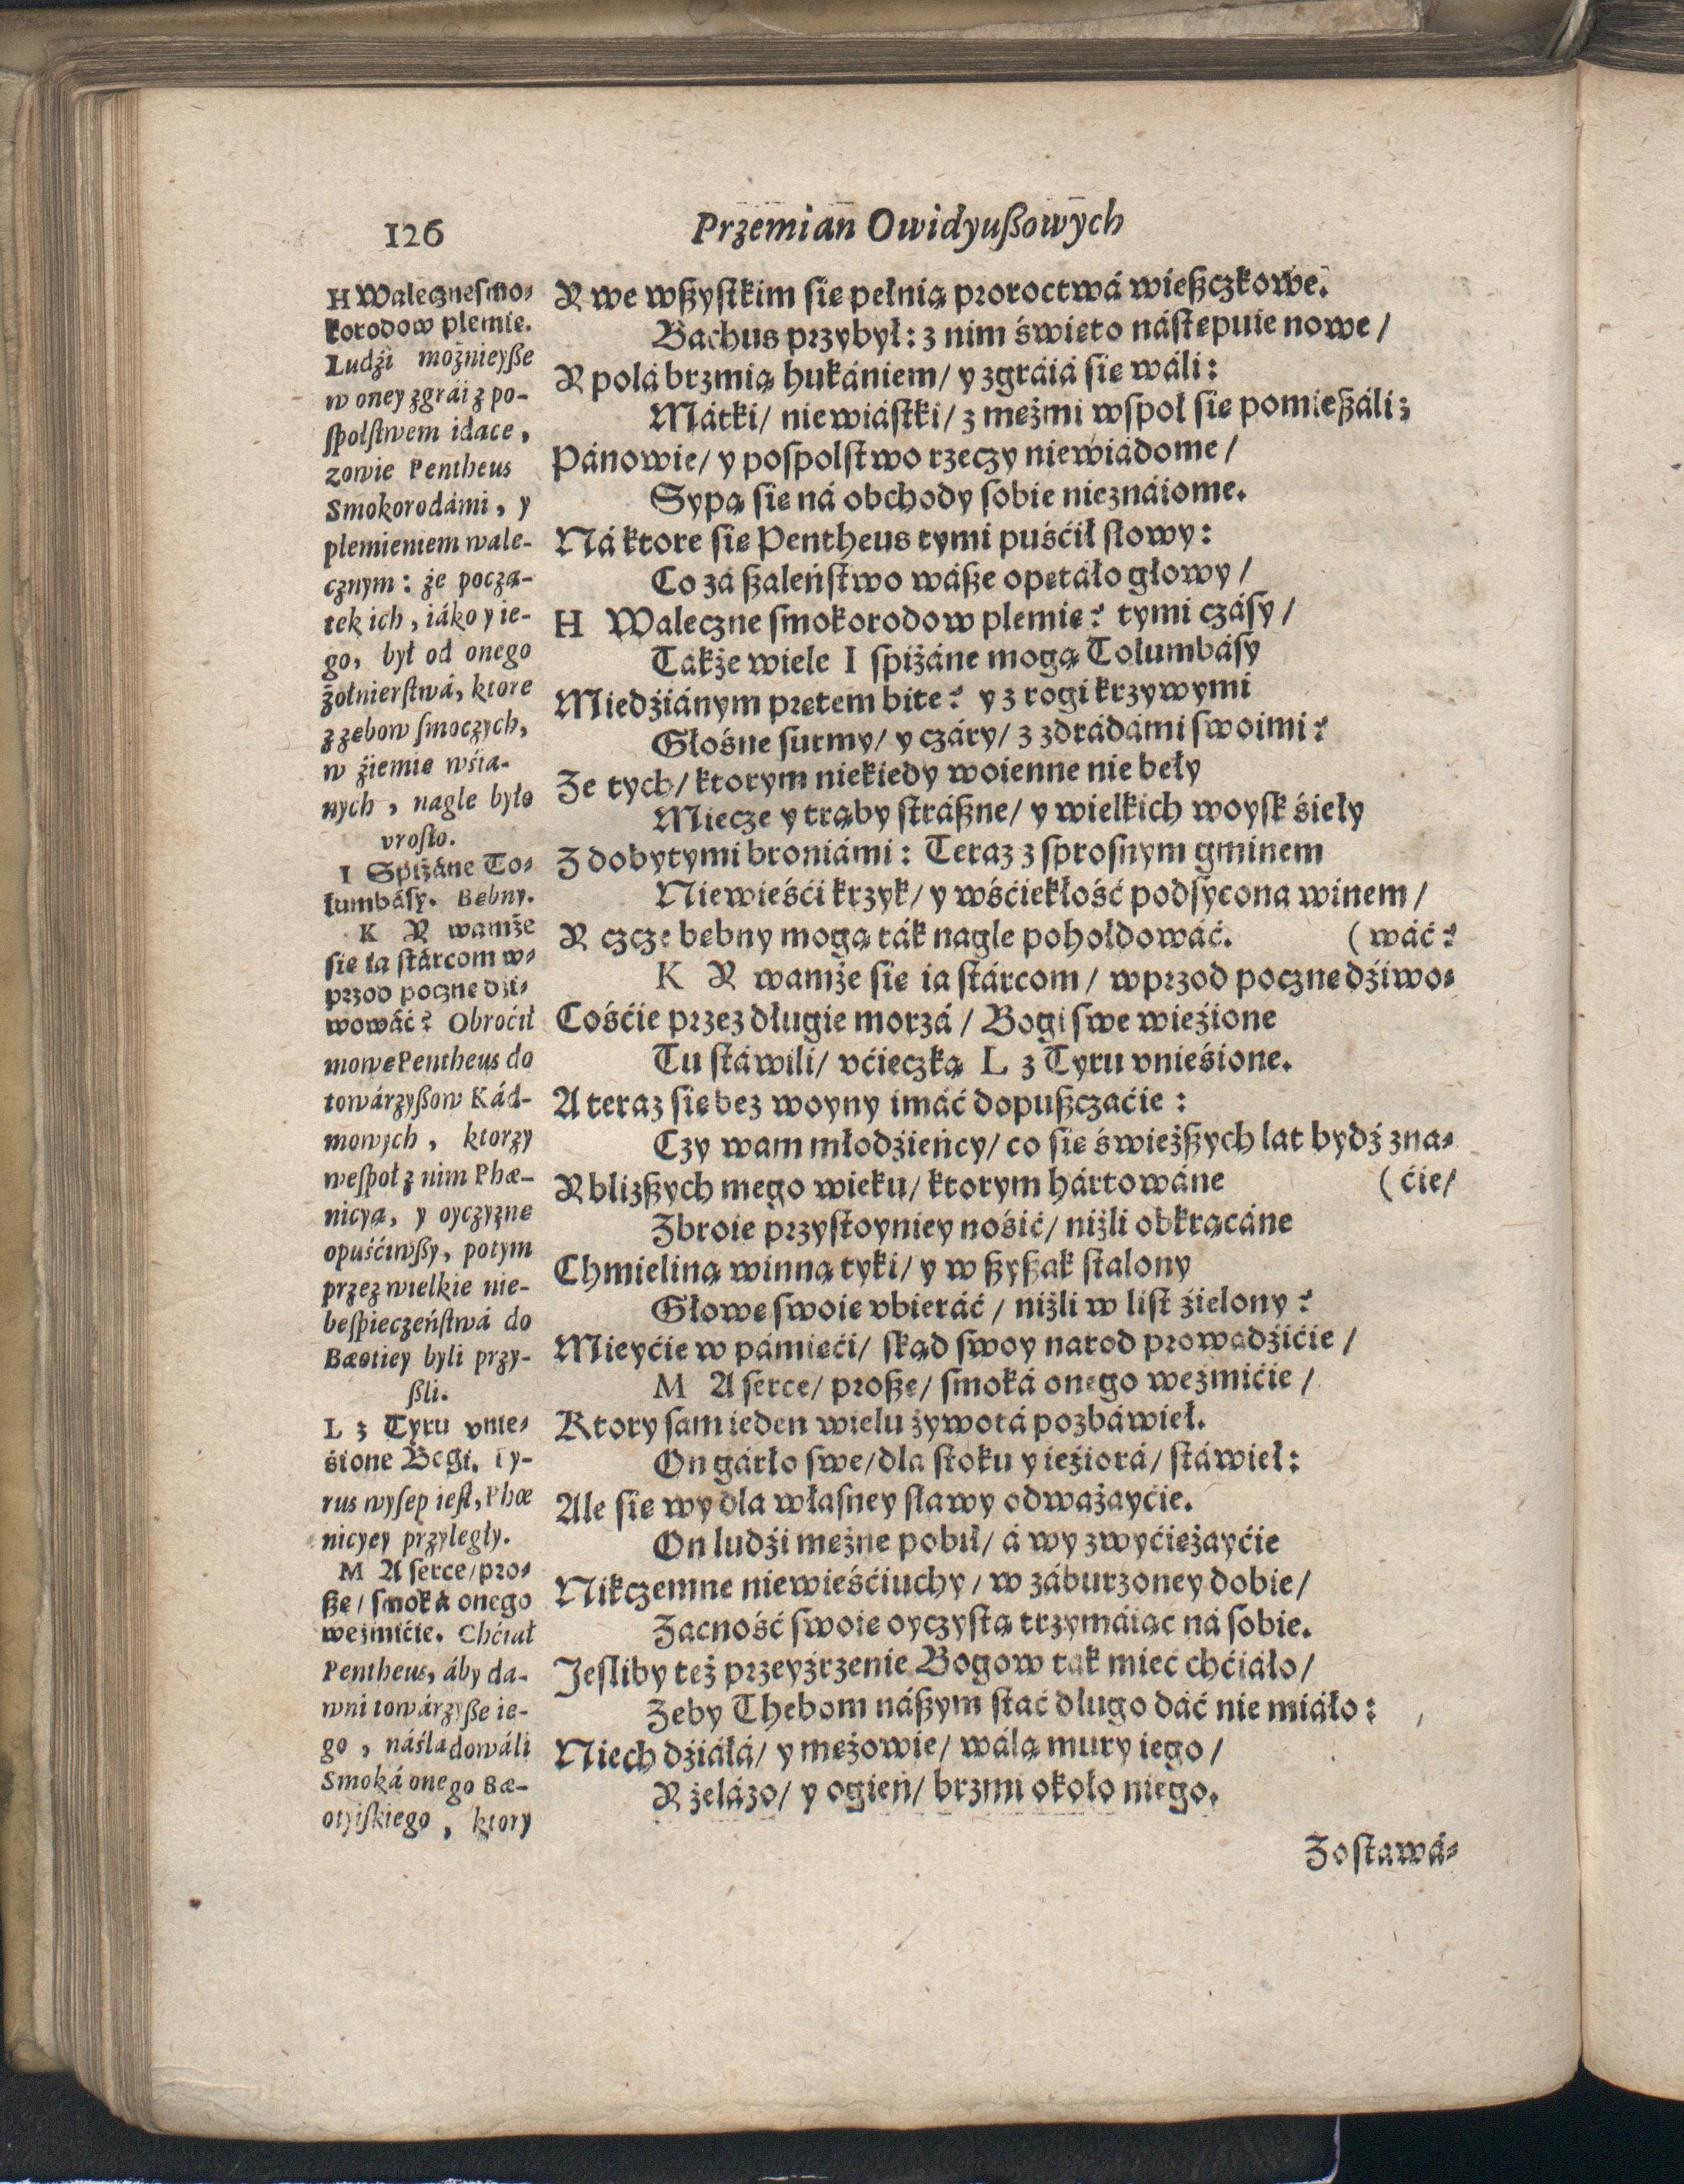 126
Przemian Owidyußowych
H Waleczne smo-
korodow plemie.
Ludźi możnieyße
w oney zgrái z po-
spolstwem idace,
zowie Pentheus
Smokorodámi, y
plemieniem wale-
cznym: że począ-
tek ich, iáko y ie-
go, był od onego
żołnierstwá, ktore
z zebow smoczych,
w źiemie wśia-
nych, nagle było
vrosło.
I Spiżáne To-
łumbásy. Bebny.
K Y wamże
sie ia stárcom w-
przod poczne dźi-
wowáć? Obroćił
mowe Pentheus do
towárzyßow Kád-
mowych, ktorzy
wespoł z nim Phæ-
nicyą, y oyczyzne
opuśćiwßy, potym
przez wielkie nie-
bespieczeństwá do
Bæotiey byli przy-
ßli.
L z Tyru vnie-
śione Bogi. Ty-
rus wysep iest, Phœ
nicyey przyległy.
M A serce/ pro-
ße/ smoká onego
weźmićie. Chćiał
Pentheus, áby da-
wni towárzyße ie-
go, náśladowáli
Smoká onego Bæ-
otyiskiego, ktory
Y we wßystkim sie pełnią proroctwá wießczkowe.
Bachus przybył: z nim świeto nástepuie nowe/
Y polá brzmią hukániem/ y zgráiá sie wáli:
Mátki/ niewiástki/ z meżmi wspoł sie pomießáli;
Pánowie/ y pospolstwo rzeczy niewiádome/
Sypą sie ná obchody sobie nieznáiome.
Ná ktore sie Pentheus tymi puśćił słowy:
Co zá ßaleństwo wáße opetáło głowy/
H Waleczne smokorodow plemie? tymi czásy/
Tákże wiele I spiżáne mogą Tołumbásy
Miedźiánym pretem bite? y z rogi krzywymi
Głośne surmy/ y czáry/ z zdrádámi swoimi?
Ze tych/ ktorym niekiedy woienne nie beły
Miecze y trąby stráßne/ y wielkich woysk śieły
Z dobytymi broniámi: Teraz z sprosnym gminem
Niewieśći krzyk/ y wśćiekłość podsycona winem/
Y czcze bebny mogą ták nagle pohołdowáć. (wáć?
K Y wamże sie ia stárcom/ wprzod poczne dźiwo-
Cośćie przez długie morzá/ Bogi swe wieźione
Tu stáwili/ vćieczką L z Tyru vnieśione.
A teraz sie bez woyny imáć dopußczaćie:
Czy wam młodźieńcy/ co sie świeżßych lat bydź zna-
Y bliżßych mego wieku/ ktorym hártowáne (ćie/
Zbroie przystoyniey nośić/ niżli obkrącáne
Chmieliną winną tyki/ y w ßyßak stalony
Głowe swoie vbieráć/ niżli w list źielony?
Mieyćie w pámieći/ skąd swoy narod prowadźićie/
M A serce/ proße/ smoká onego weźmićie/
Ktory sam ieden wielu żywotá pozbáwieł.
On gárło swe/ dla stoku y ieźiorá/ stáwieł:
Ale sie wy dla własney sławy odważayćie.
On ludźi meżne pobił/ á wy zwyćieżayćie
Nikczemne niewieśćiuchy/ w záburzoney dobie/
Zacność swoie oyczystą trzymáiąc ná sobie.
Jesliby też przeyźrzenie Bogow tak mieć chćiáło/
Zeby Thebom náßym stać długo dáć nie miáło:
Niech dźiáłá/ y meżowie/ wálą mury iego/
Y żelázo/ y ogień/ brzmi około niego.
Zostawá-